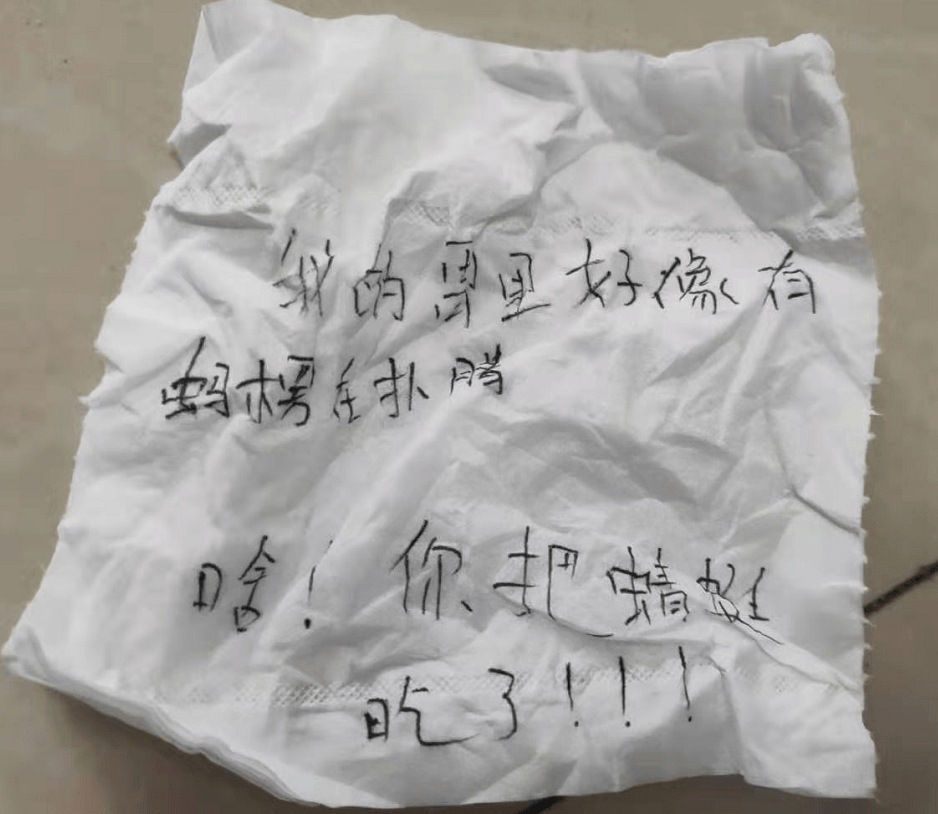 我的胃里好像有
蚂楞在扑腾
啥！你把蜻蜓
吃了！！！